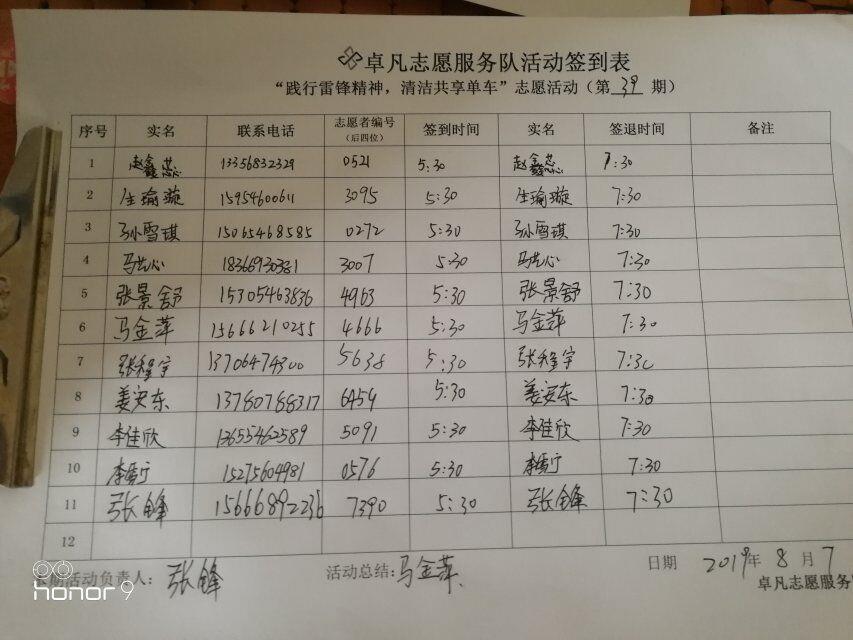 卓凡志愿服务队活动签到表
“践行雷锋精神，清洁共享单车”志愿活动（第 39 期）
序号 实名 联系电话 志愿者编号（后四位） 签到时间 实名 签退时间 备注
1 赵鑫蕊 13356832329 0521 5:30 赵鑫蕊 7:30
2 生瑜璇 15954600611 3095 5:30 生瑜璇 7:30
3 孙雪琪 15065468585 0272 5:30 孙雪琪 7:30
4 马 心 18366930381 3007 5:30 马 心 7:30
5 张景舒 15305463836 4963 5:30 张景舒 7:30
6 马金萍 15666210255 4666 5:30 马金萍 7:30
7 张程宇 13706474300 5638 5:30 张程宇 7:30
8 姜安东 13780788317 6454 5:30 姜安东 7:30
9 李佳欣 13655462589 5091 5:30 李佳欣 7:30
10 李 宁 15275604981 0576 5:30 李 宁 7:30
11 张锋 15666892236 7390 5:30 张锋 7:30
12
本期活动负责人：张锋 活动总结：马金萍 日期 2019年 8 月 7
卓凡志愿服务
honor 9